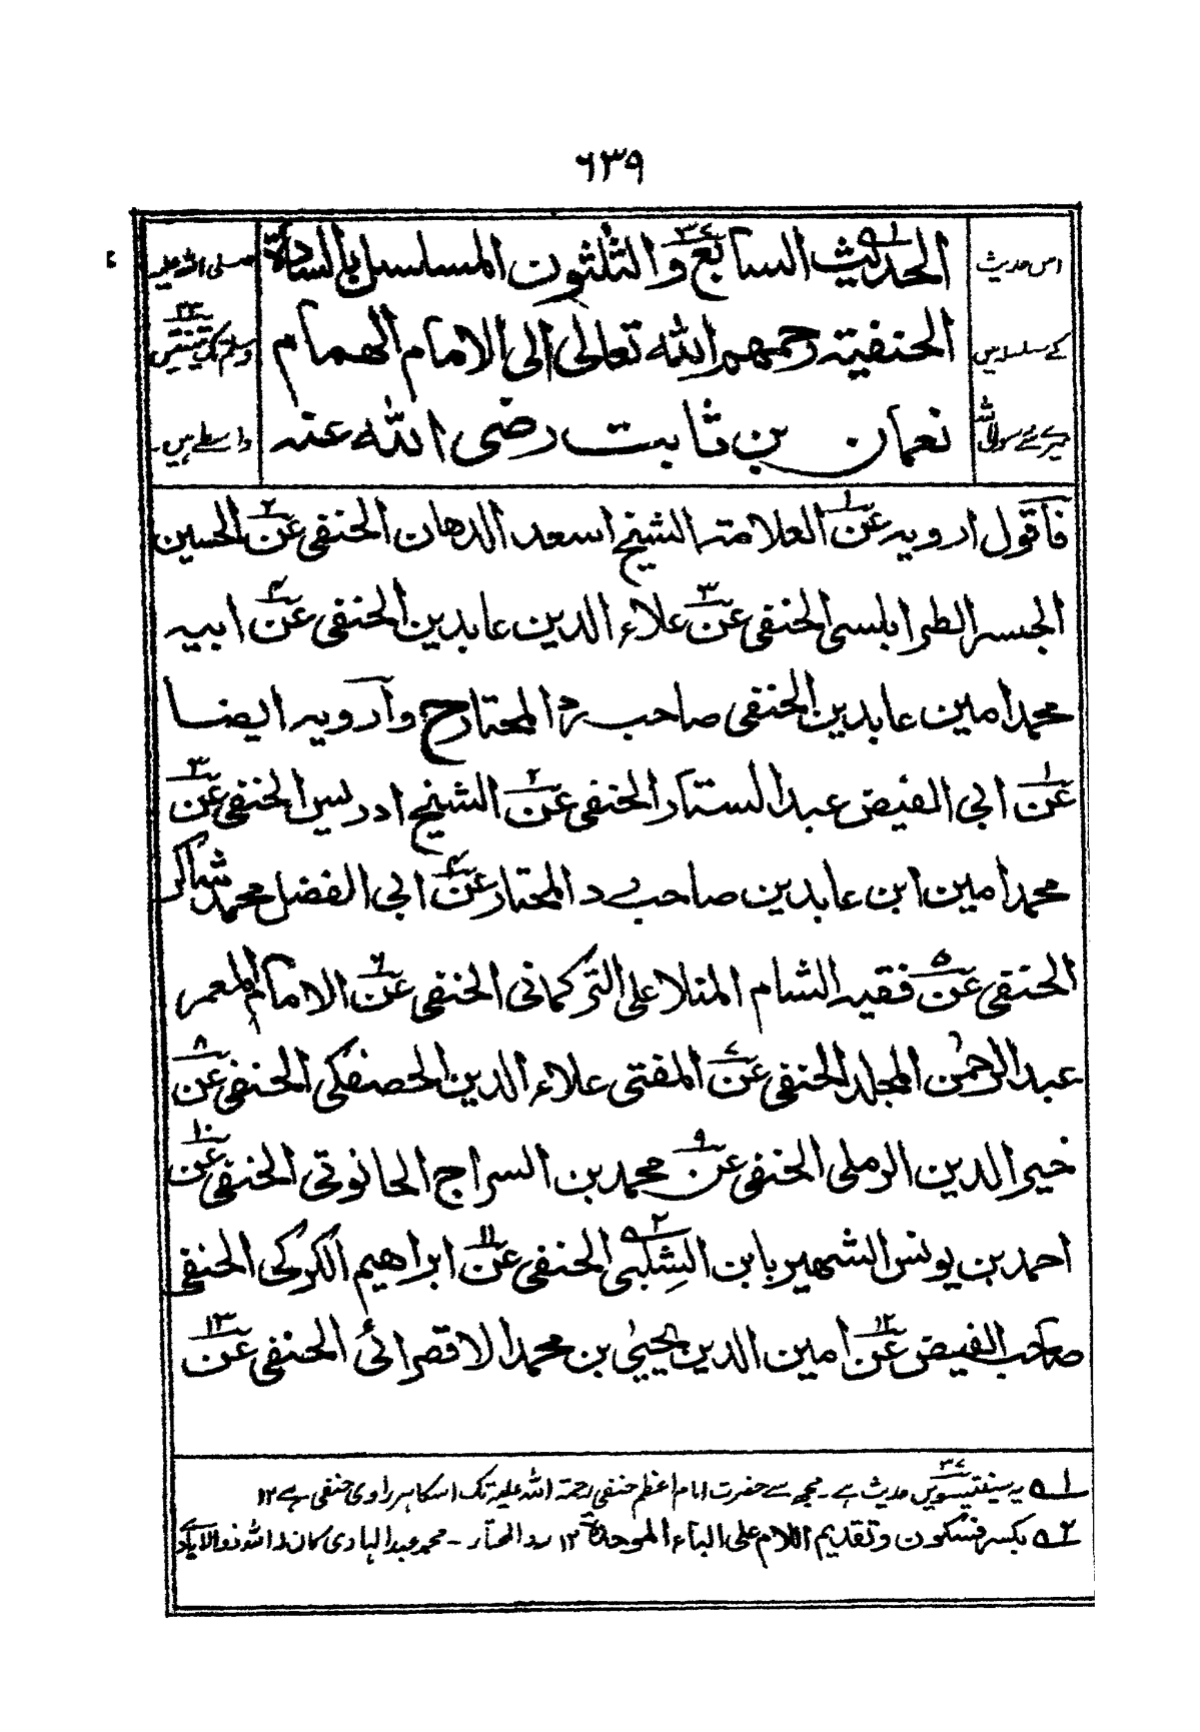 ٦٣٩
اس حدیث
کے سلسلہ میں
میرے سے رسول اللہ
الحدیث السابع والثلثون المسلسل بالسادة
الحنفیة رحمهم الله تعالی الی الامام الهمام
نعمان بن ثابت رضی الله عنه
صلی اللہ علیہ
وسلم تک تینتیس ٣٣
واسطے ہیں۔
فاقول ارویه عن١ العلامة الشیخ اسعد الدهان الحنفی عن٢ الحسین
الجسر الطرابلسی الحنفی عن٣ علاء الدین عابدین الحنفی عن٤ ابیه
محمد امین عابدین الحنفی صاحب رد المحتار ح وارویه ایضا
عن١ ابی الفیض عبد الستار الحنفی عن٢ الشیخ ادریس الحنفی عن٣
محمد امین ابن عابدین صاحب رد المحتار عن٤ ابی الفضل محمد شاکر
الحنفی عن٥ فقیه الشام المنلا علی الترکمانی الحنفی عن٦ الامام المعمر
عبد الرحمٰن المجلد الحنفی عن٧ المفتی علاء الدین الحصفکی الحنفی عن٨
خیر الدین الرملی الحنفی عن٩ محمد بن السراج الحانوتی الحنفی عن١٠
احمد بن یونس الشهیر بابن الشِلبی٢ الحنفی عن١١ ابراهیم الکرکی الحنفی
صاحب الفیض عن١٢ امین الدین یحییٰ بن محمد الاقصرائی الحنفی عن١٣
١ یہ سینتیسویں ٣٧ حدیث ہے۔ مجھ سے حضرت امام اعظم حنفی رحمۃ اللہ علیہ تک اسکا ہر راوی حنفی ہے ١٢
٢ بکسر فسکون وتقدیم اللام علی الباء الموحدة ١٢ رد المحتار ۔ محمد عبد الهادی کان له الله ذو الایادی